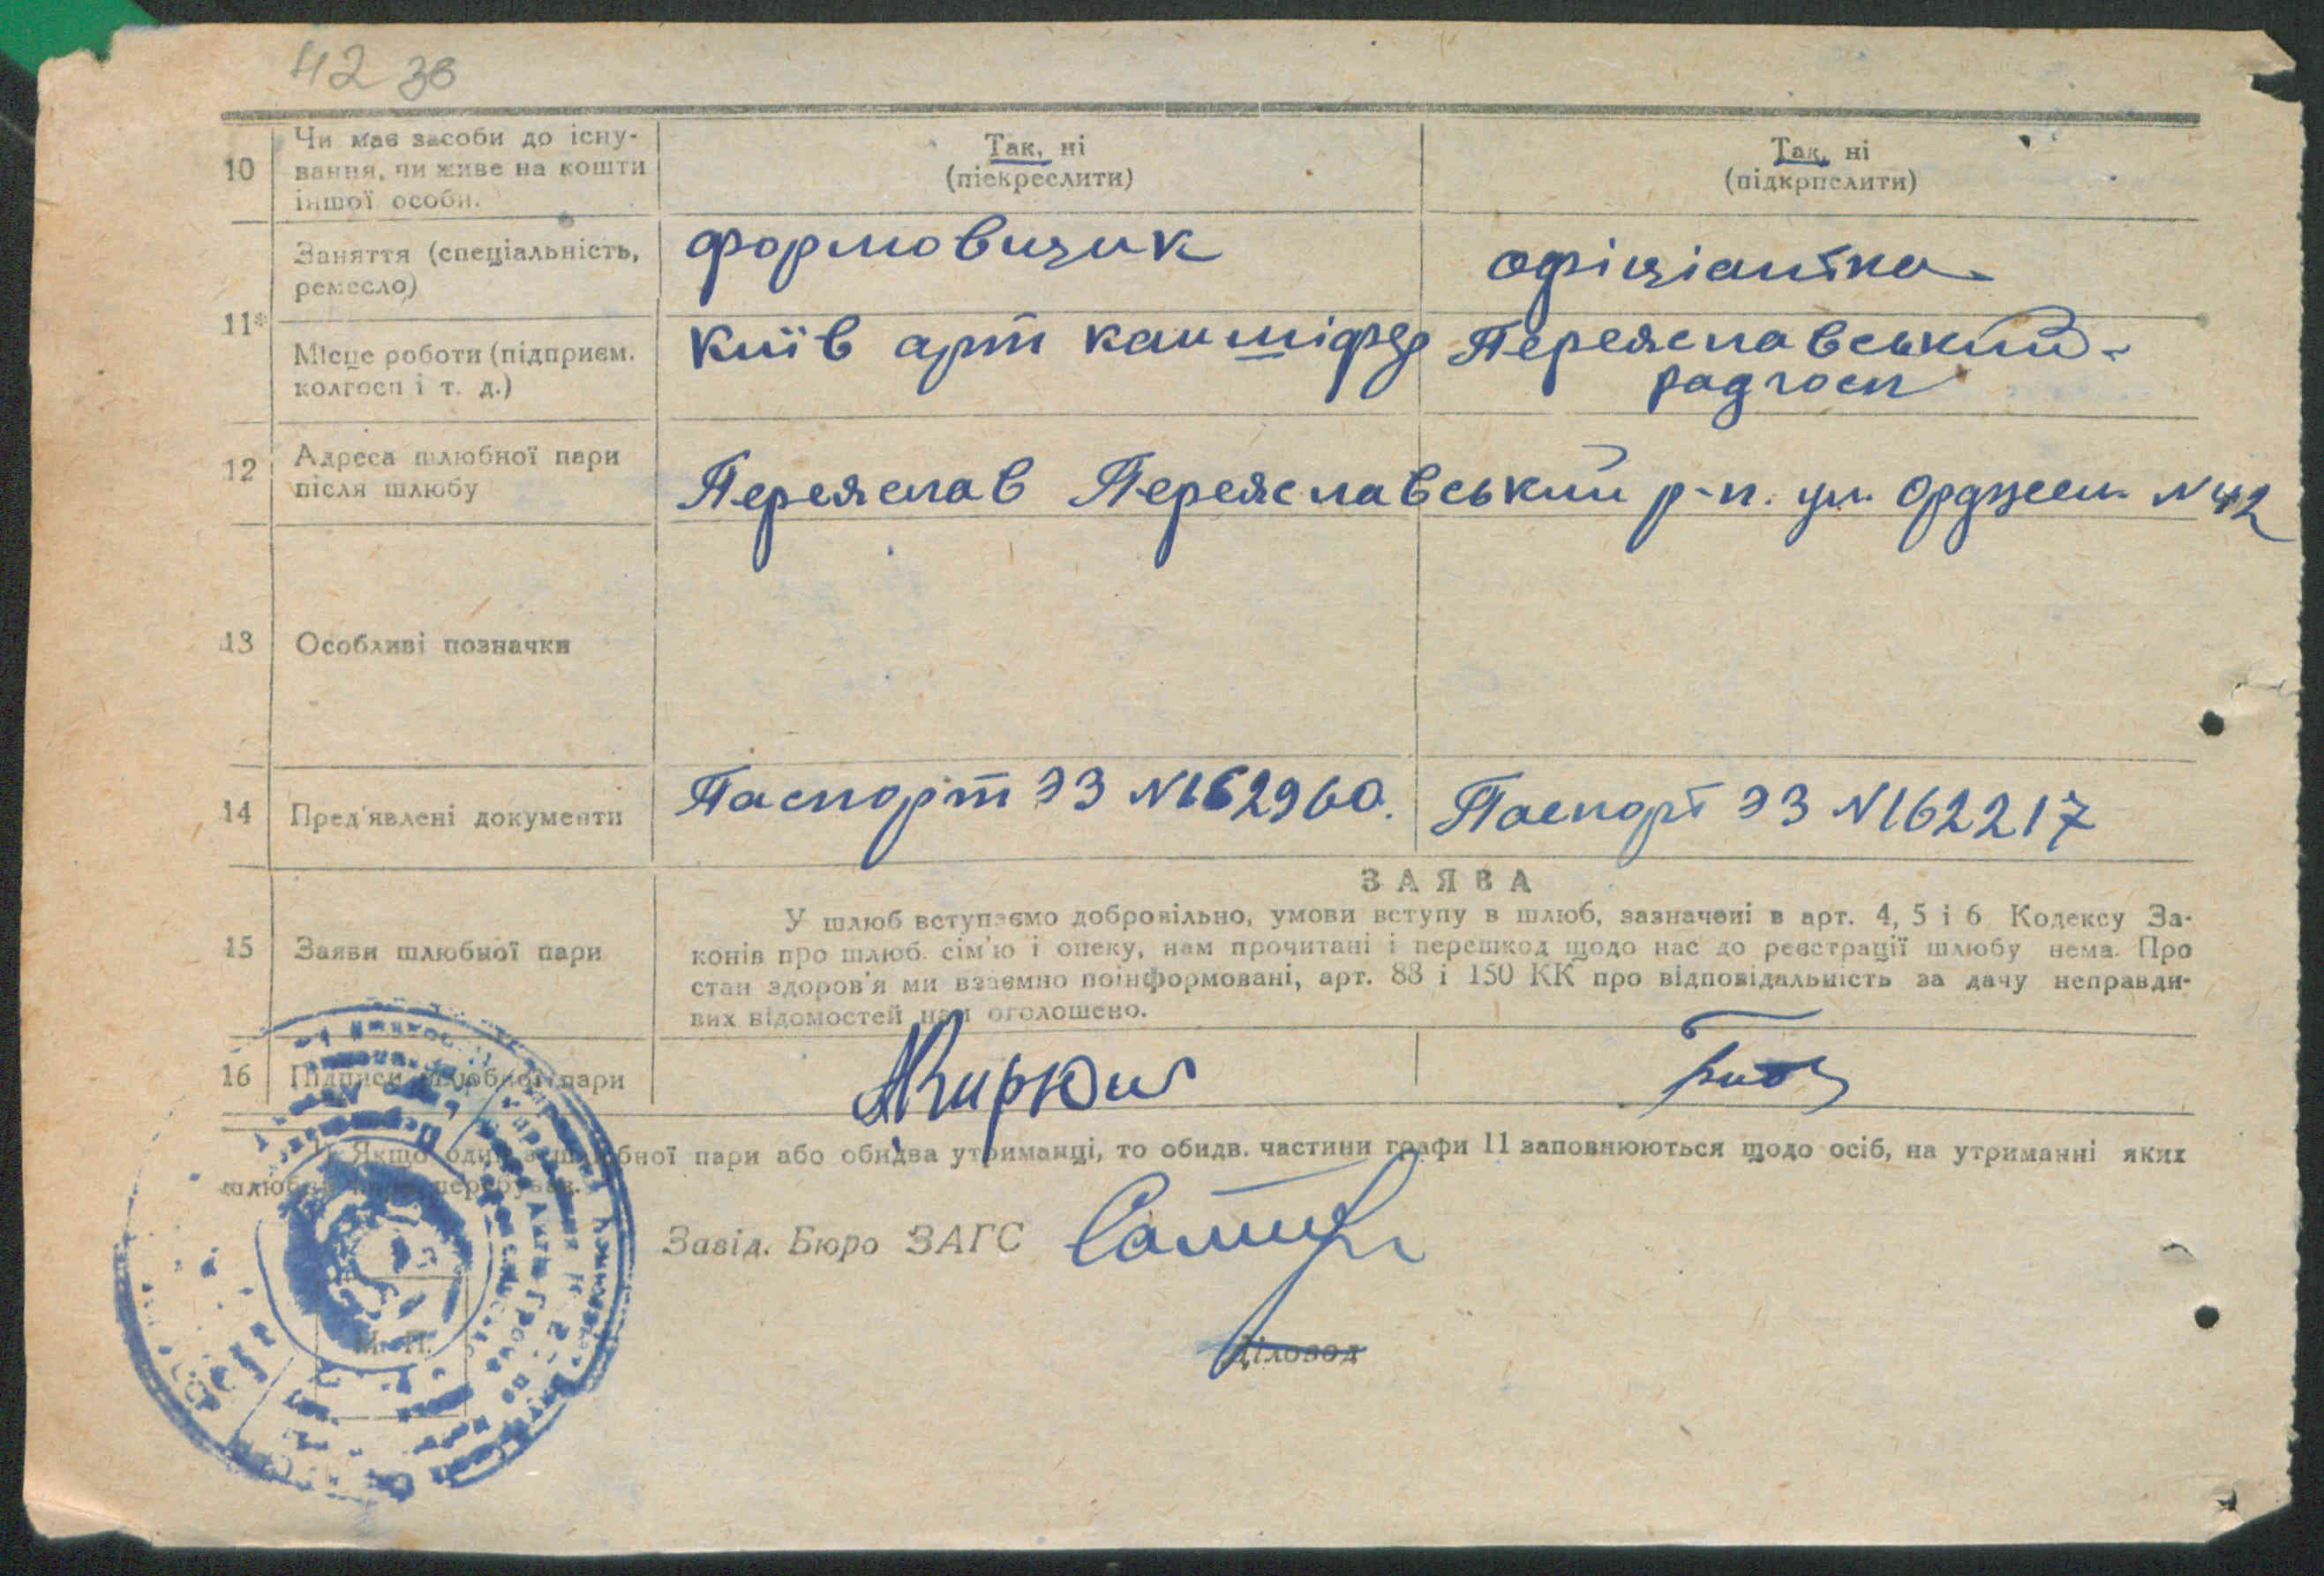 42 38
10 Чи має засоби до існу-
вання, чи живе на кошти
іншої особи.
Так, ні
(піекреслити)
Так, ні
(підкрпслити)
11*
Заняття (спеціальність,
ремесло)
формовщик
офіціантка
Місце роботи (підприєм.
колгосп і т. д.)
Київ арт
Переяславський
радгосп
12 Адреса шлюбної пари
після шлюбу
Переяслав Переяславський р-н. ул. Орджен. N 42
13 Особливі позначки
14 Пред'явлені документи
Паспорт ЭЗ N162960.
Паспорт ЭЗ N162217
ЗАЯВА
15 Заяви шлюбної пари
У шлюб вступаємо добровільно, умови вступу в шлюб, зазначені в арт. 4, 5 і 6 Кодексу За-
конів про шлюб. сім'ю і опеку, нам прочитані і перешкод щодо нас до реєстрації шлюбу нема. Про
стан здоров'я ми взаємно поінформовані, арт. 88 і 150 КК про відповідальність за дачу неправди-
вих відомостей нам оголошено.
16 Підписи шлюбної пари
Якщо один з шлюбної пари або обидва утриманці, то обидв. частини графи 11 заповнюються щодо осіб, на утриманні яких
перебуває.
Завід. Бюро ЗАГС
М. П.
Діловод